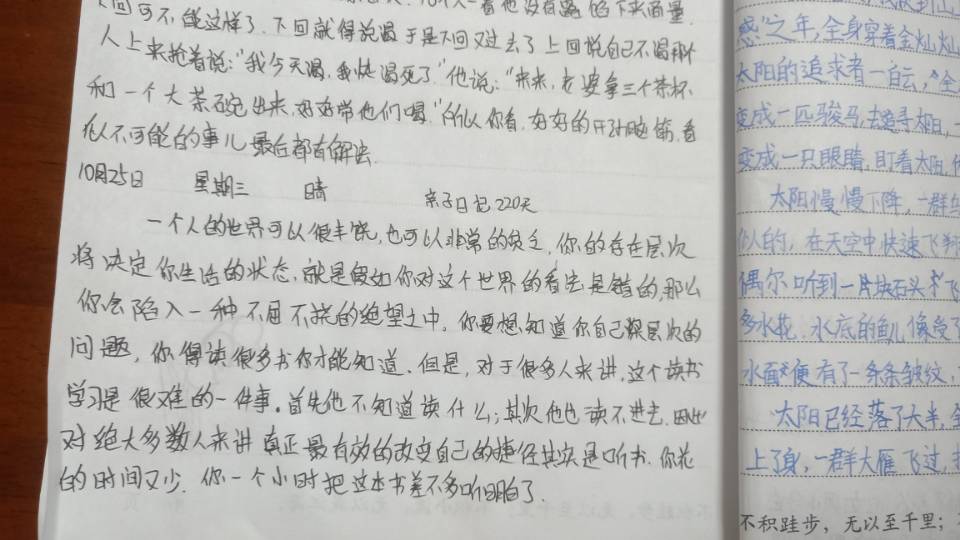 可不能这样了.下回就得说渴于是下回又过去了上回说自己不渴那
人上来抢着说:"我今天渴,我快渴死了"他说:"来来,老婆拿三个茶杯.
和一个大茶碗出来,好好带他们喝."所以你看,好好的开动脑筋,看
似不可能的事儿最后都有解法.
10月25日 星期三 晴 亲子日记220天
一个人的世界可以很丰饶,也可以非常的贫乏,你的存在层次
将决定你生活的状态,就是假如你对这个世界的看法是错的,那么
你会陷入一种不屈不挠的绝望之中.你要想知道你自己深层次的
问题,你得读很多书你才能知道.但是,对于很多人来讲,这个读书
学习是很难的一件事.首先他不知道读什么;其次他也读不进去.因此
对绝大多数人来讲真正最有效的改变自己的捷径其实是听书.你花
的时间又少.你一个小时把这本书差不多听明白了.
感"之年,全身穿着金灿灿
太阳的追求者一白云,"全
变成一匹骏马,去追寻太阳,一
变成一只眼睛,盯着太阳,
太阳慢慢下降,一群
人的,在天空中快速飞翔
偶尔听到一片块石头飞
多水花.水底的鱼儿像受了
水面便有了一条条皱纹,
太阳已经落了大半,
上了身,一群大雁飞过,
不积跬步，无以至千里；